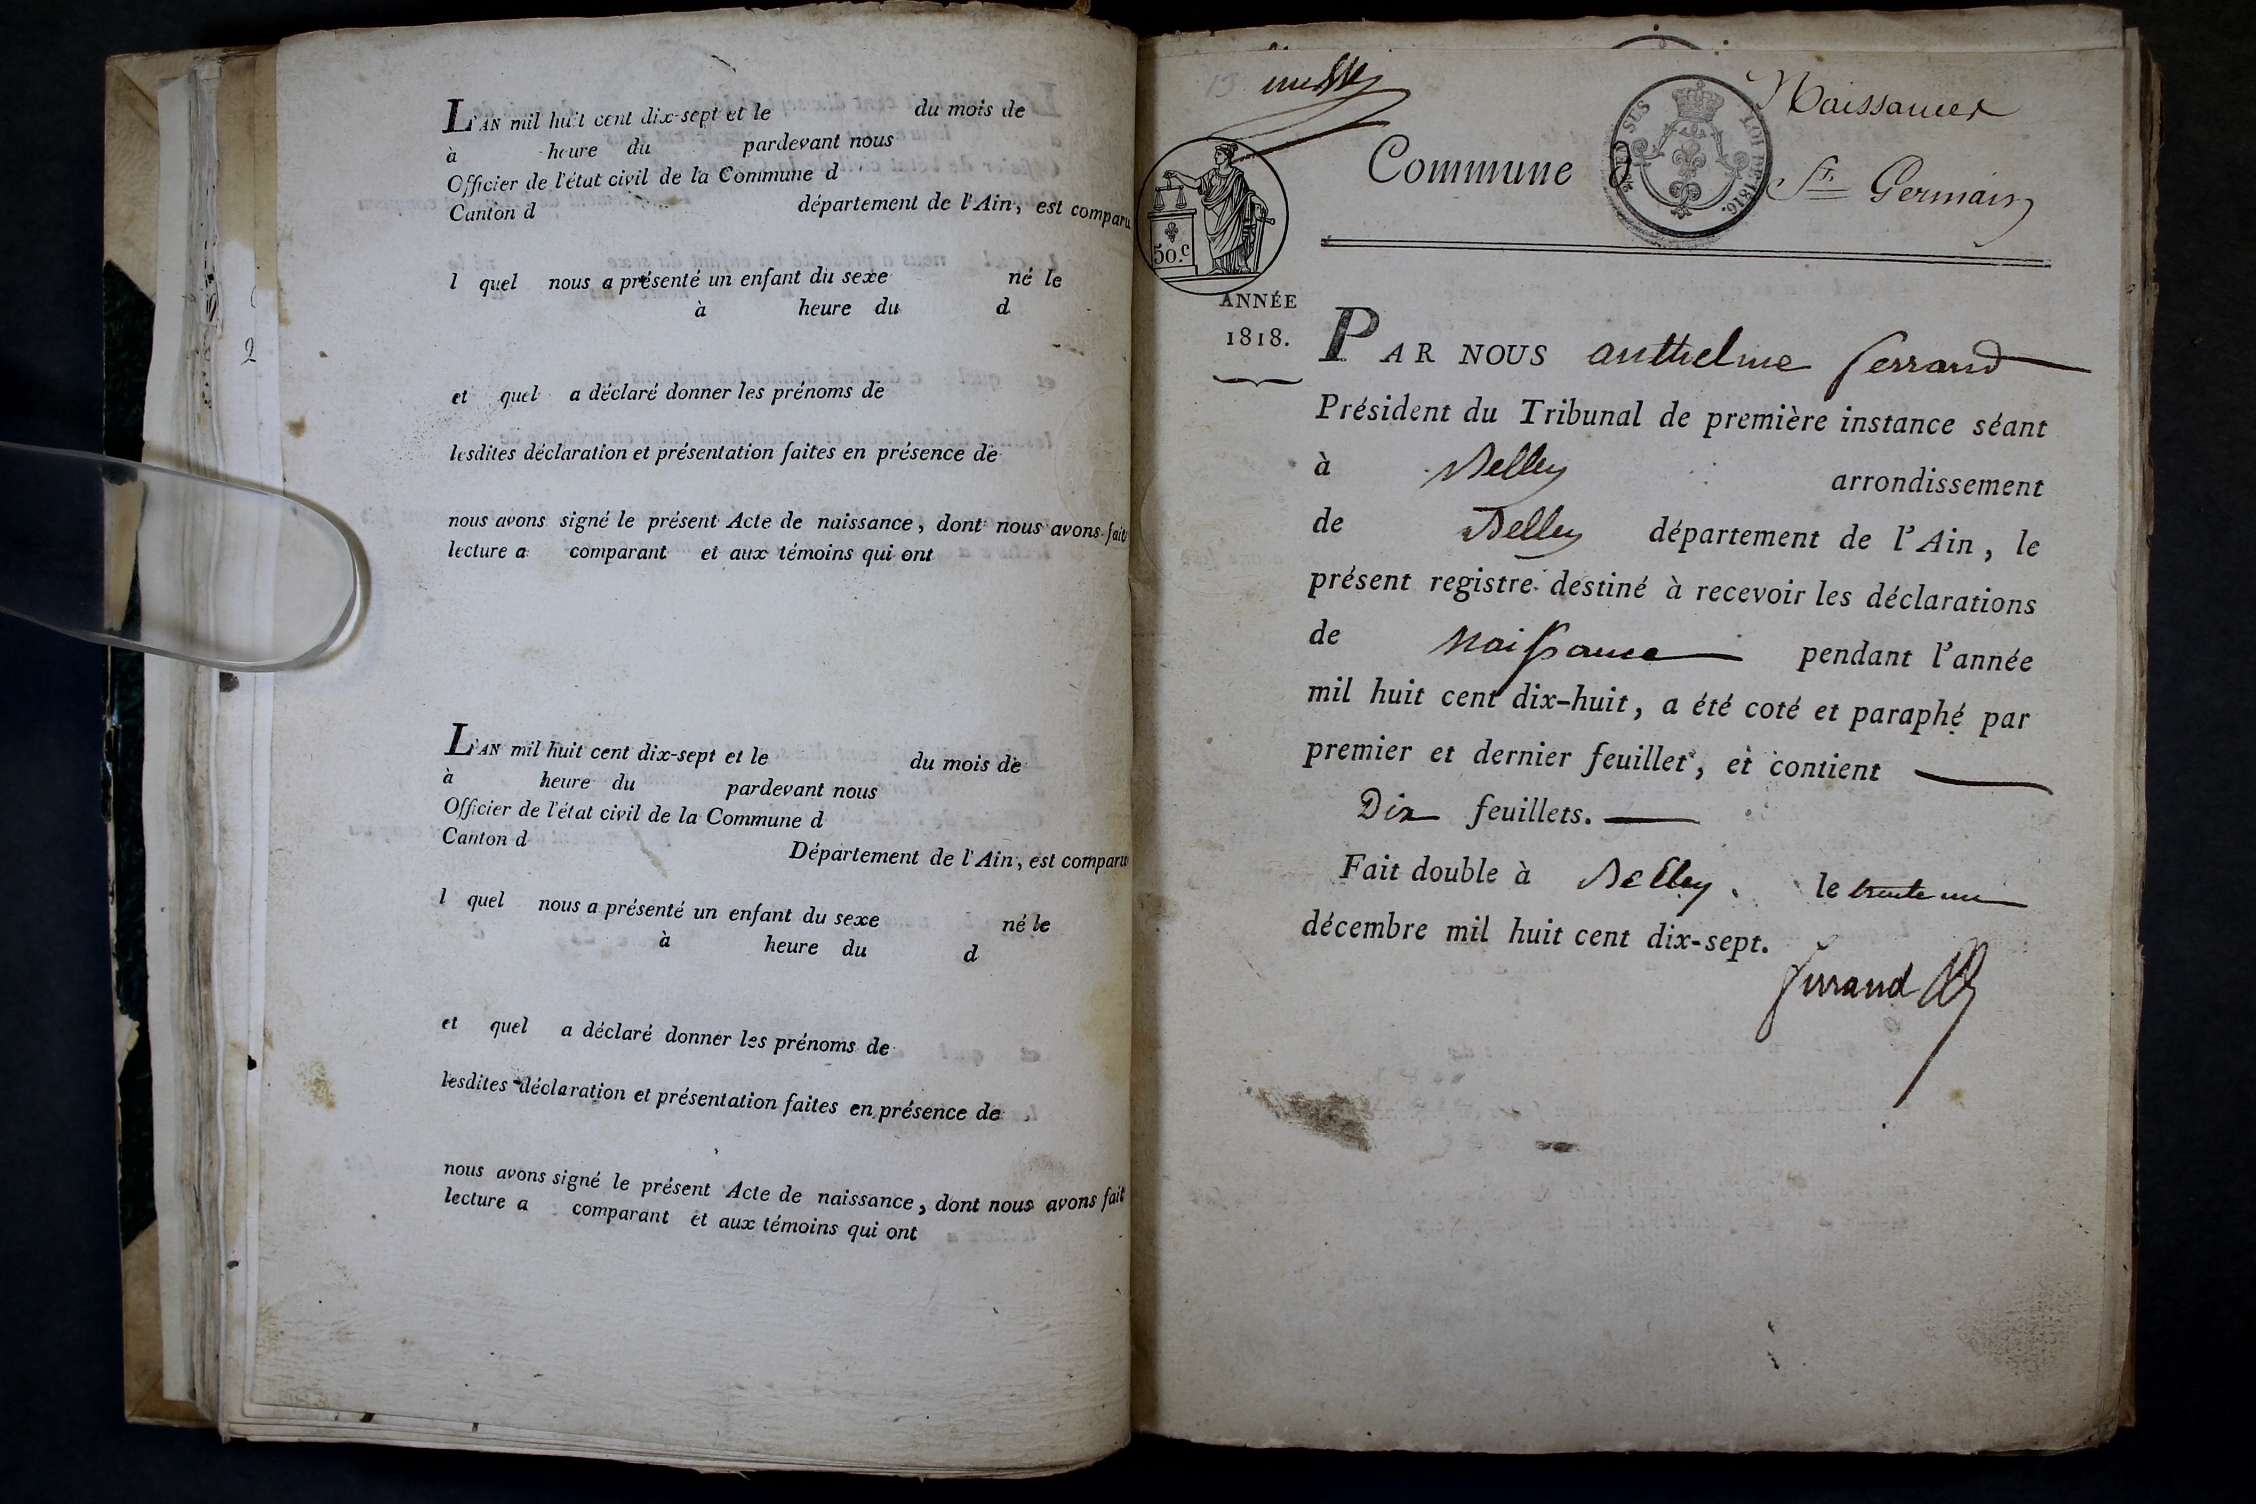 L'AN mil huit cent dix-sept et le du mois de
à heure du pardevant nous
Officier de l'état civil de la Commune d
Canton d département de l'Ain, est comparu
l quel nous a présenté un enfant du sexe né le
à heure du d
et quel a déclaré donner les prénoms de
lesdites déclaration et présentation faites en présence de
nous avons signé le présent Acte de naissance, dont nous avons fait
lecture a comparant et aux témoins qui ont
L'AN mil huit cent dix-sept et le du mois de
à heure du pardevant nous
Officier de l'état civil de la Commune d
Canton d Département de l'Ain, est comparu
l quel nous a présenté un enfant du sexe né le
à heure du d
et quel a déclaré donner les prénoms de
lesdites déclaration et présentation faites en présence de
nous avons signé le présent Acte de naissance, dont nous avons fait
lecture a comparant et aux témoins qui ont
2
13
Naissances
Commune d St Germain
LOI DE 1816.
50.c
ANNÉE
1818.
PAR NOUS anthelme ferrand
Président du Tribunal de première instance séant
à Belley arrondissement
de Belley département de l'Ain, le
présent registre destiné à recevoir les déclarations
de Naissance pendant l'année
mil huit cent dix-huit, a été coté et paraphé par
premier et dernier feuillet, et contient
Dix feuillets.
Fait double à Belley. le trente un
décembre mil huit cent dix-sept.
ferrand